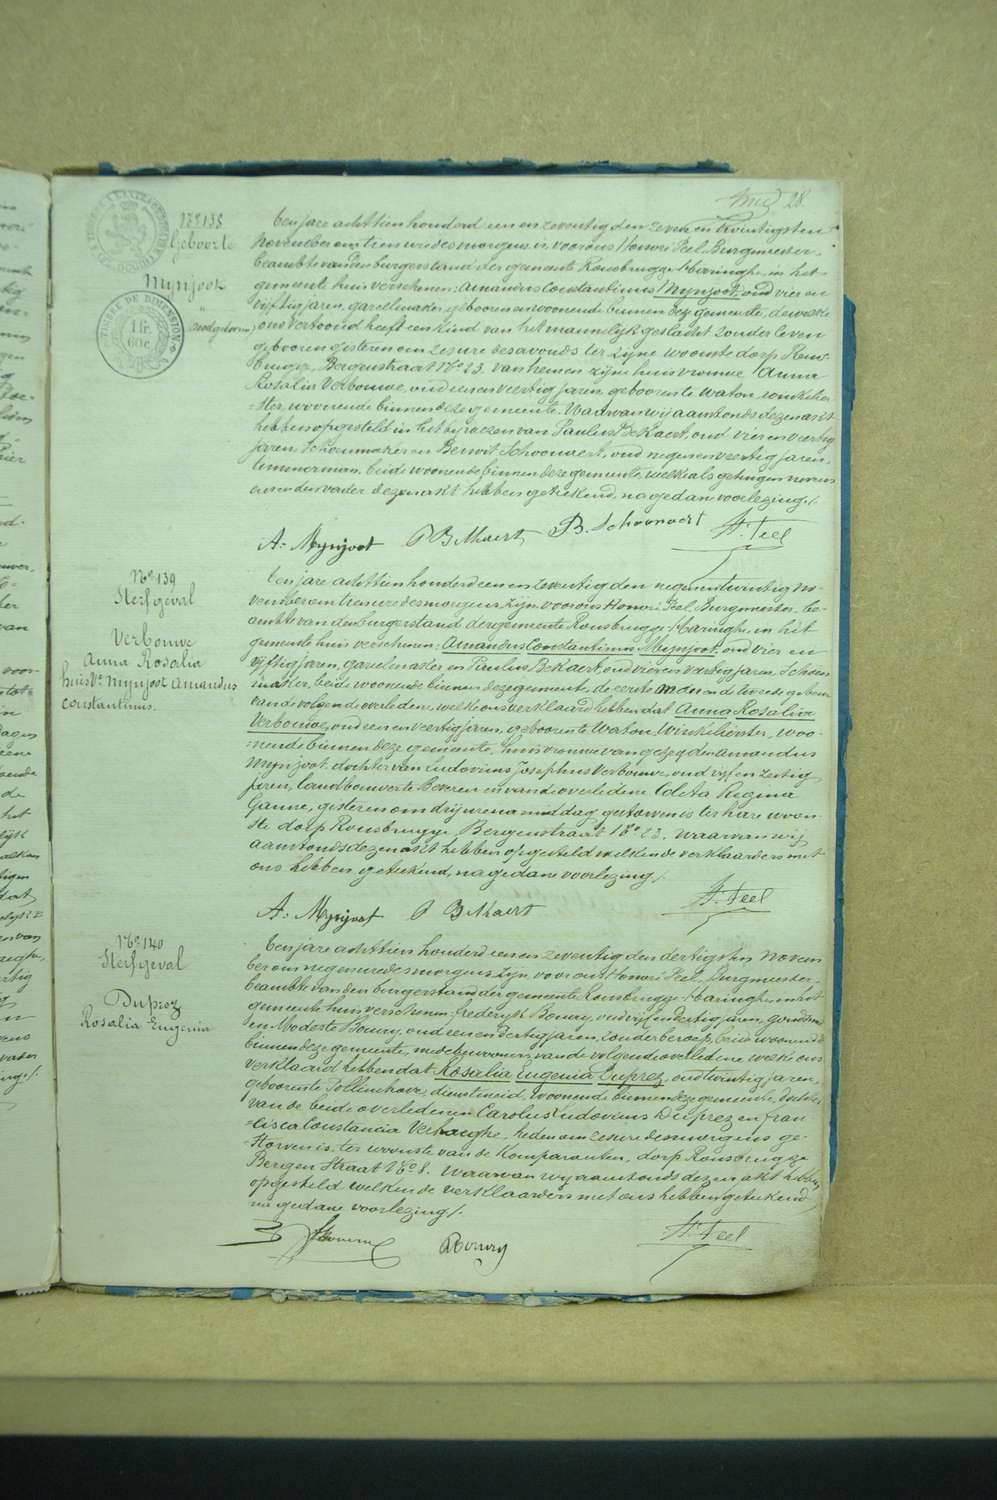 28
N° 138
Geboorte
Mynjoot
doodgeboren
TIMBRE DE DIMENSION
1 fr.
60 c.
Ten jare achttien honderd een en zeventig den zeven en twintigsten
November om tien ure des morgens is voor ons Honoré Peel Burgmeester,
beambte van den burgerstand der gemeente Rousbrugge-Haringhe, in het
gemeente huis verschenen: Amandus Constantinus Mynjoot, oud vier en
vyftig jaren, gareelmaker, geboren en woonende binnen deze gemeente, dewelke
ons vertoond heeft een kind van het mannelyk geslacht zonder leven
geboren gisteren om ure des avonds ter zyne woonste dorp Rous-
brugge, Bergenstraat N° 23. van hem en zyne huisvrouwe Anna
Rosalia Verbouwe, oud een en veertig jaren, geboren te Watou, winkelier-
ster, woonende binnen deze gemeente. Waarvan wy aanstonds dezen akt
hebben opgesteld in het bywezen van Paulus BeKaert, oud vier en veertig
jaren, Schoenmaker en Benoit Schoonaert, oud negen en veertig jaren,
timmerman, beide woonende binnen deze gemeente, welke als getuigen nevens
ons en den vader dezen akt hebben geteekend, na gedane voorlezing /.
A: Mynjoot P BeKaert B. Schoonaert H. Peel
N° 139
Sterfgeval
Verbouwe
Anna Rosalia
huisv. Mynjoot Amandus
Constantinus.
Ten jare achttien honderd een en zeventig den negenentwintig No-
vember om tien ure des morgens, zyn voor ons Honoré Peel, Burgmeester, be-
ambte van den burgerstand der gemeente Rousbrugge-Haringhe, in het
gemeente huis verschenen: Amandus Constantinus Mynjoot, oud vier en
vyftig jaren, gareelmaker en Paulus BeKaert, oud vier en veertig jaren, Schoen-
maker, beide woonende binnen deze gemeente, de eerste man en de tweede gebuur
van de volgende overledene, welke ons verklaard hebben dat Anna Rosalia
Verbouwe, oud een en veertig jaren, geboren te Watou, Winkelierster, woo-
nende binnen deze gemeente, huisvrouwe van gezegden Amandus
Mynjoot, dochter van Ludovicus Josephus Verbouwe, oud vyf en zestig
jaren, landbouwer te Beveren en van de overledene Coleta Regina
Ganne, gisteren om dry uren namiddag gestorven is ter hare woon-
ste dorp Rousbrugge Bergenstraat N° 23. Waarvan wy
aanstonds dezen akt hebben opgesteld welken de verklaarders met
ons hebben geteekend, na gedane voorlezing /.
A: Mynjoot P BeKaert H. Peel
N° 140
Sterfgeval
Duprez
Rosalia Eugenia
Ten jare achttien honderd een en zeventig den dertigsten Novem
ber om negen ure des morgens, zyn voor ons Honoré Peel, Burgmeester,
beambte van den burgerstand der gemeente Rousbrugge-Haringhe, in het
gemeente huis verschenen: frederyk Boury, oud vyf en dertig jaren,
en Modeste Boury, oud een en dertig jaren, zonder beroep, beide woonende
binnen deze gemeente, medebewoners van de volgende overledene welke ons
verklaard hebben dat Rosalia Eugenia Duprez, oud twintig jaren,
geboren te Pollinchove, dienstmeid, woonende binnen deze gemeente, dochter
van de beide overledenen Carolus Ludovicus Duprez en Fran-
cisca Constancia Verhaeghe, heden om ure des morgens ge-
storven is, ter woonste van de Komparanten, dorp Rousbrugge
Bergen Straat N° 8. Waarvan wy aanstonds dezen akt hebben
opgesteld welken de verklaarders met ons hebben geteekend,
na gedane voorlezing /.
Boury H. Peel